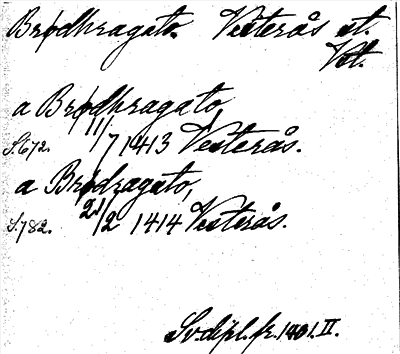 Brødhragato. Vesterås st.
Vst.
a Brødhragato,
S.672. 11/7 1413 Vesterås.
a Brødragato,
S.782. 21/2 1414 Vesterås.
Sv.dipl.fr.1401.II.